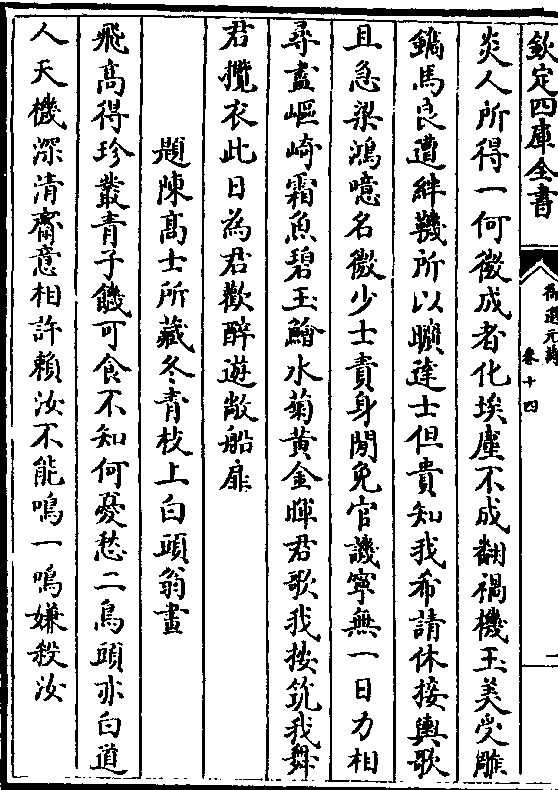 欽定四庫全書
御選元詩
卷十四
炎人所得一何微成者化埃塵不成翻禍機玉美受雕
鐫馬良遭絆鞿所以曠達士但貴知我希請休接輿歌
且急梁鴻噫名微少士責身閒免官譏寧無一日力相
尋盡嶇崎霜魚碧玉鱠水菊黄金暉君歌我按筑我舞
君攬衣此日為君歡醉遊敞船扉
題陳髙士所藏冬青枝上白頭翁畫
飛髙得珍叢青子饑可食不知何憂愁二鳥頭亦白道
人天機深清齋意相許賴汝不能鳴一鳴嫌殺汝